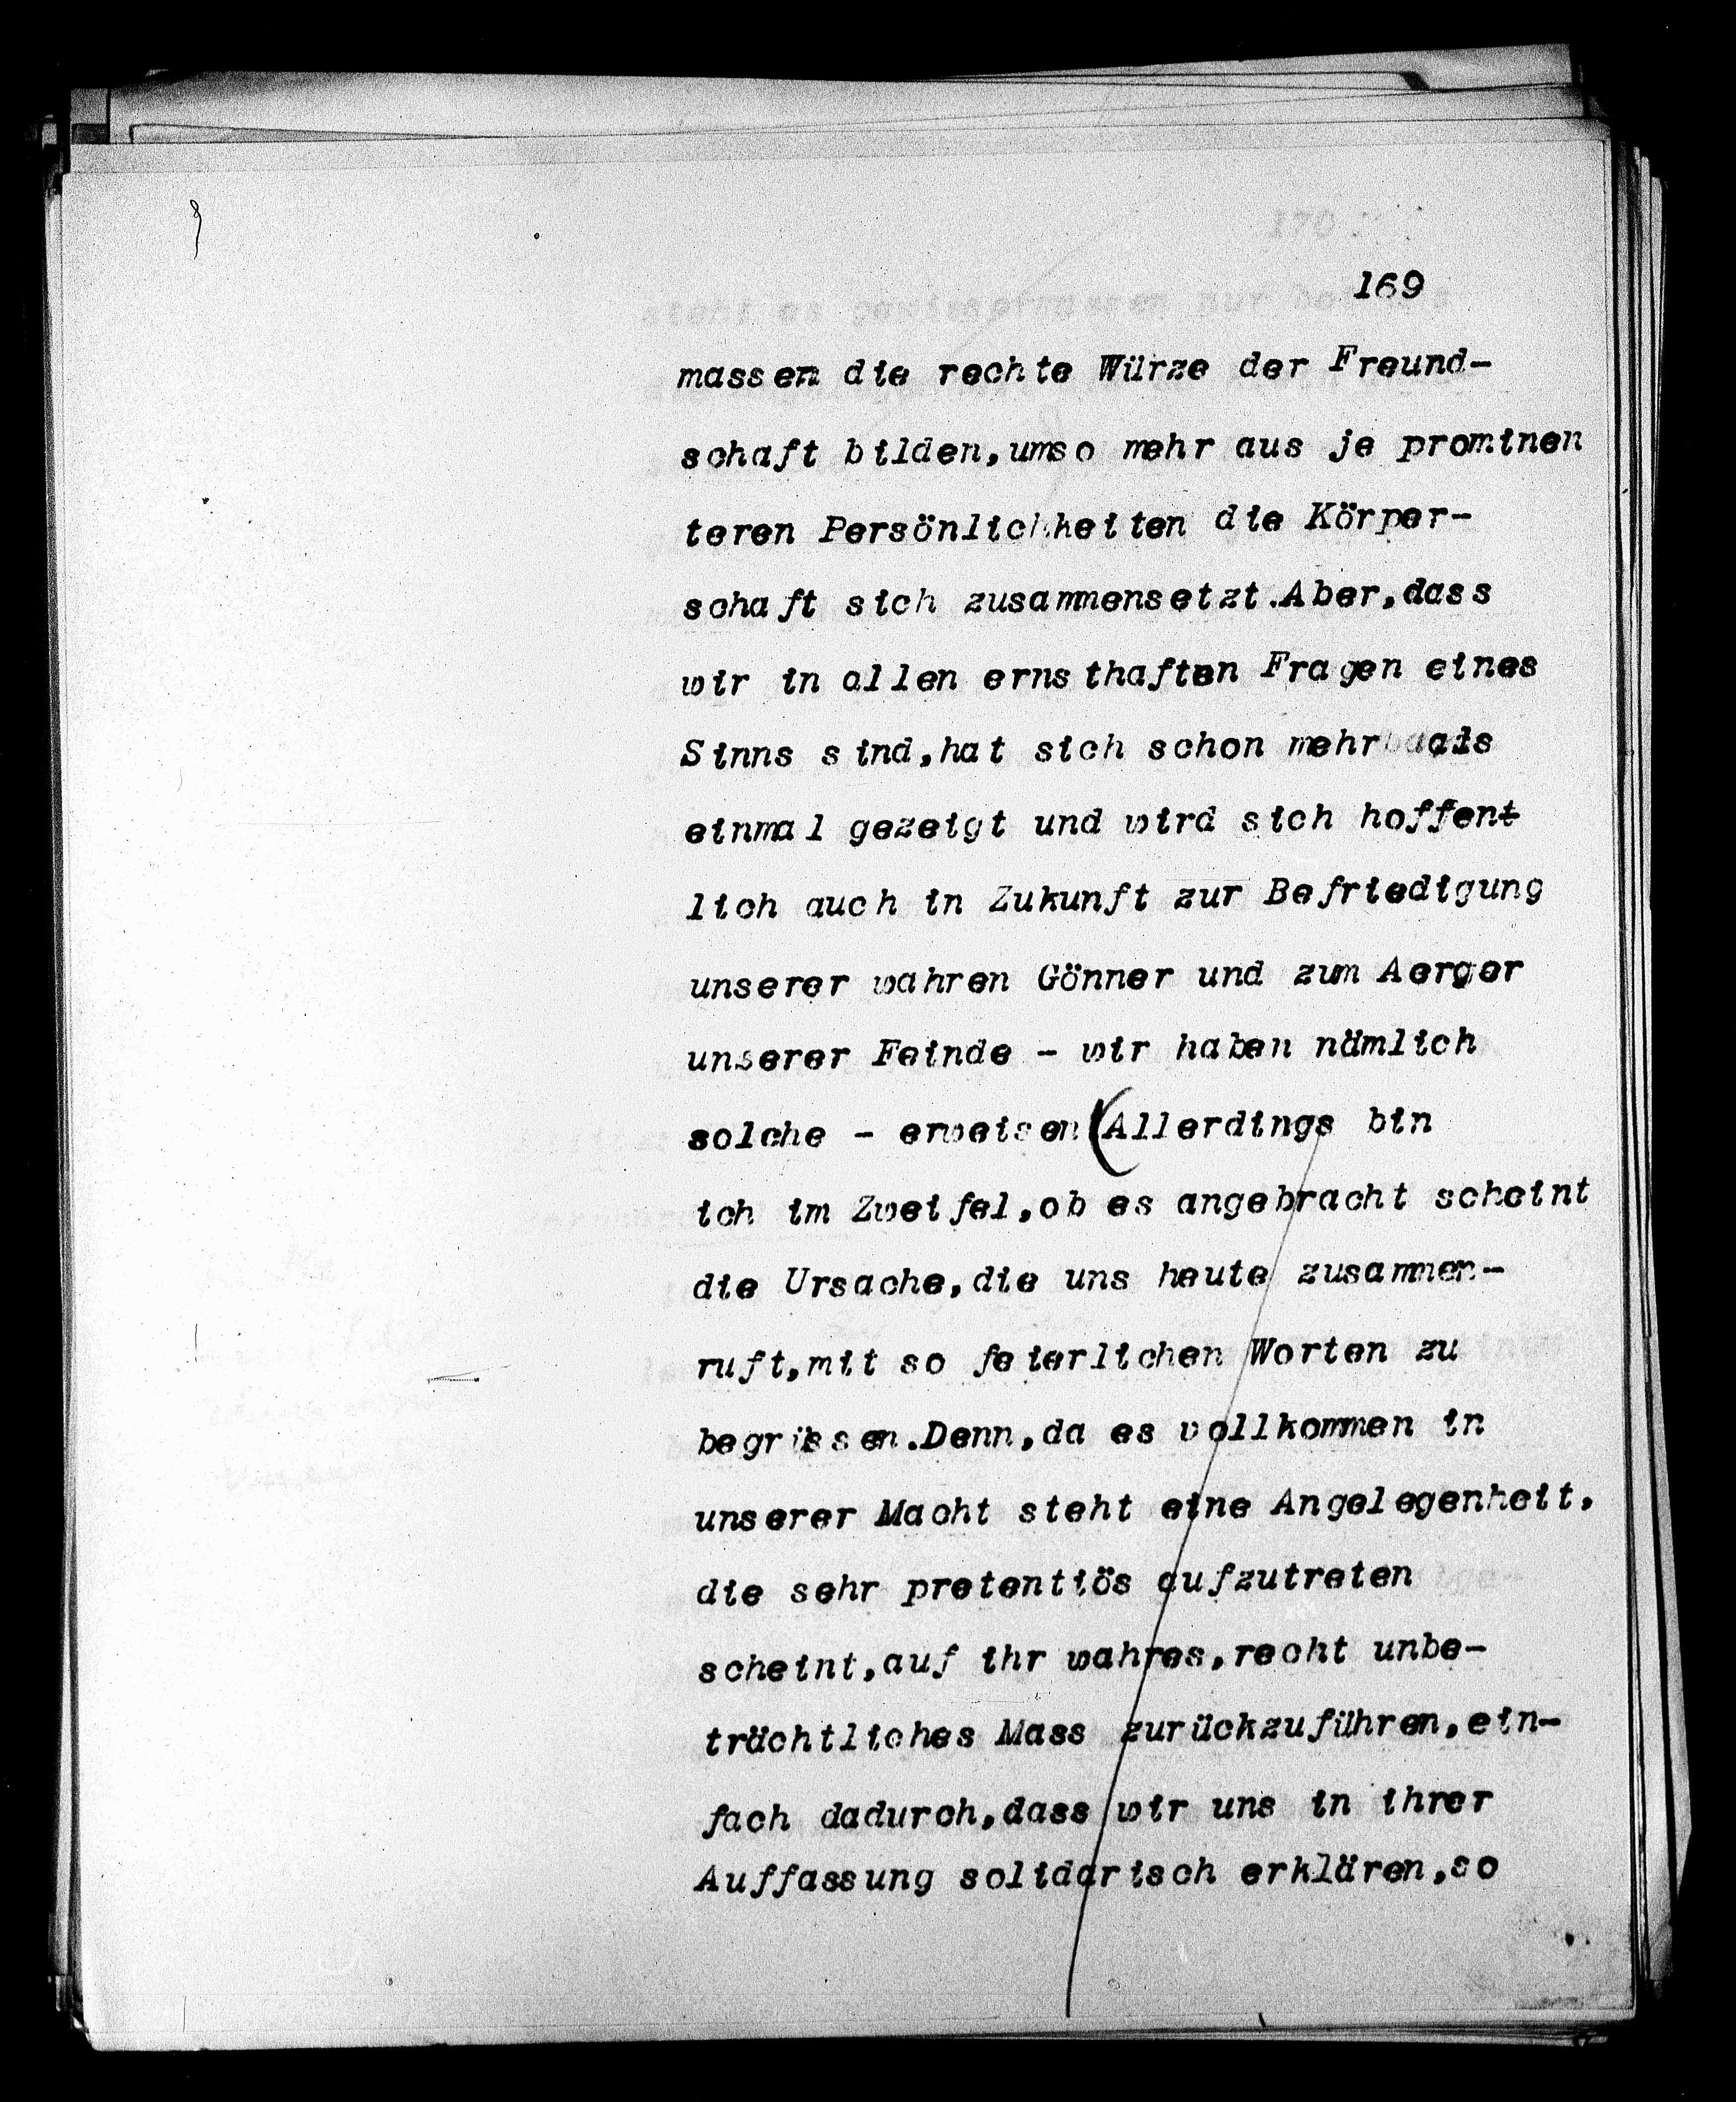 169
massen die rechte Würze der Freund-
schaft bilden,umso mehr aus je prominen
teren Persönlichkeiten die Körper-
schaft sich zusammensetzt.Aber,dass
wir in allen ernsthaften Fragen eines
Sinns sind,hat sich schon mehr als
einmal gezeigt und wird sich hoffent
lich auch in Zukunft zur Befriedigung
unserer wahren Gönner und zum Aerger
unserer Feinde - wir haben nämlich
solche - erweisen(Allerdings bin
ich im Zweifel,ob es angebracht scheint
die Ursache,die uns heute zusammen-
ruft,mit so feierlichen Worten zu
begrüssen.Denn,da es vollkommen in
unserer Macht steht eine Angelegenheit,
die sehr pretentiös aufzutreten
scheint,auf ihr wahres,recht unbe-
trächtliches Mass zurückzuführen,ein-
fach dadurch,dass wir uns in ihrer
Auffassung solidarisch erklären,so